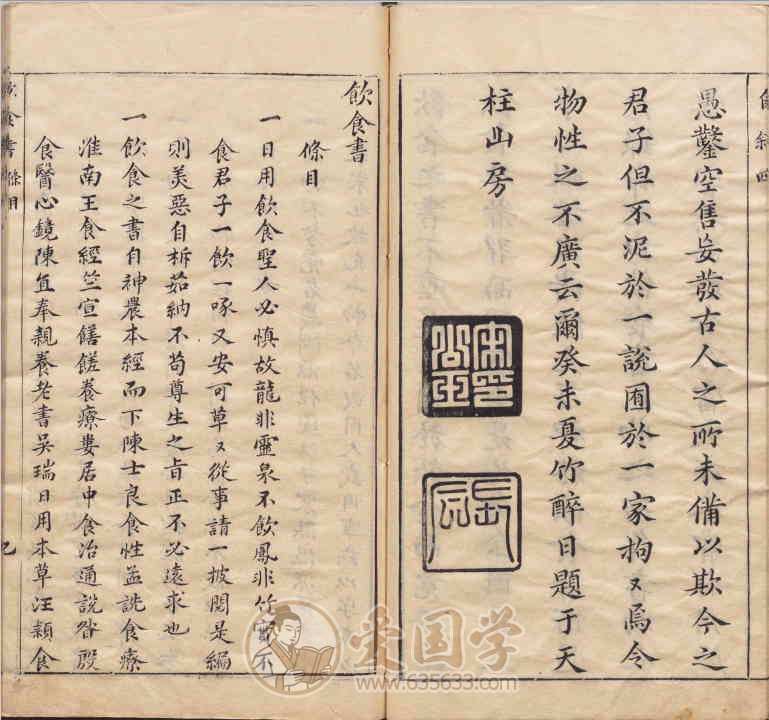 愚鑿空售妄發古人之所未備以欺今之
君子但不泥於一說囿於一家拘〻焉令
物性之不廣云爾癸未夏竹醉日題于天
柱山房
飲食書
條目
一日用飲食聖人必慎故龍非靈泉不飲鳳非竹實不
食君子一飲一啄又安可草〻從事請一披閱是編
則美惡自析茹納不苟尊生之旨正不必遠求也
一飲食之書自神農本經而下陳士良食性孟詵食療
淮南王食經竺宣饍饈養療婁居中食治通說昝殷
食醫心鏡陳直奉親養老書吳瑞日用本草汪穎食
飲食書 條目
愛国学
www.635633.com